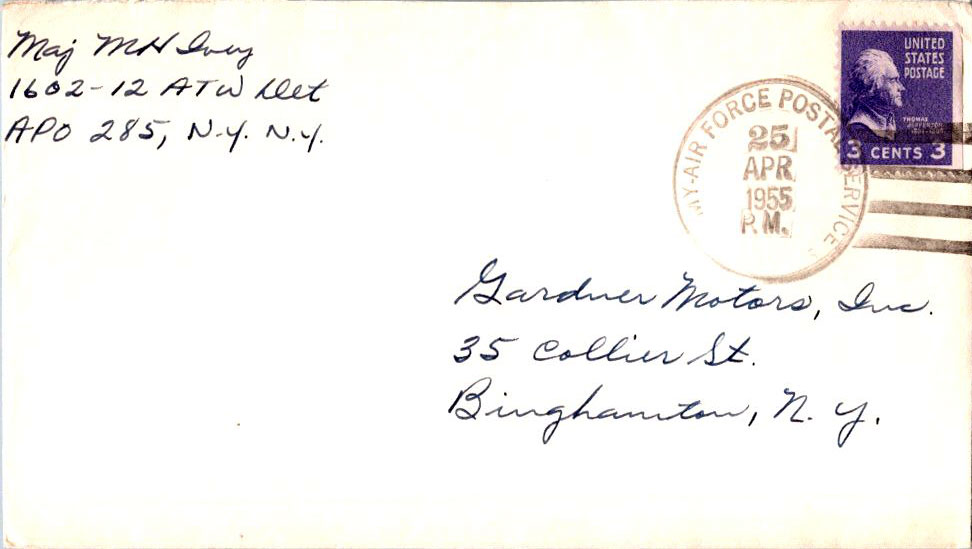 Maj MH Ivey
1602-12 ATW Det
APO 285, N.Y. N.Y.
UNITED
STATES
POSTAGE
THOMAS
JEFFERSON
3 CENTS 3
MY-AIR FORCE POSTAL SERVICE
25
APR
1955
P.M.
Gardner Motors, Inc.
35 Collier St.
Binghamton, N. Y.